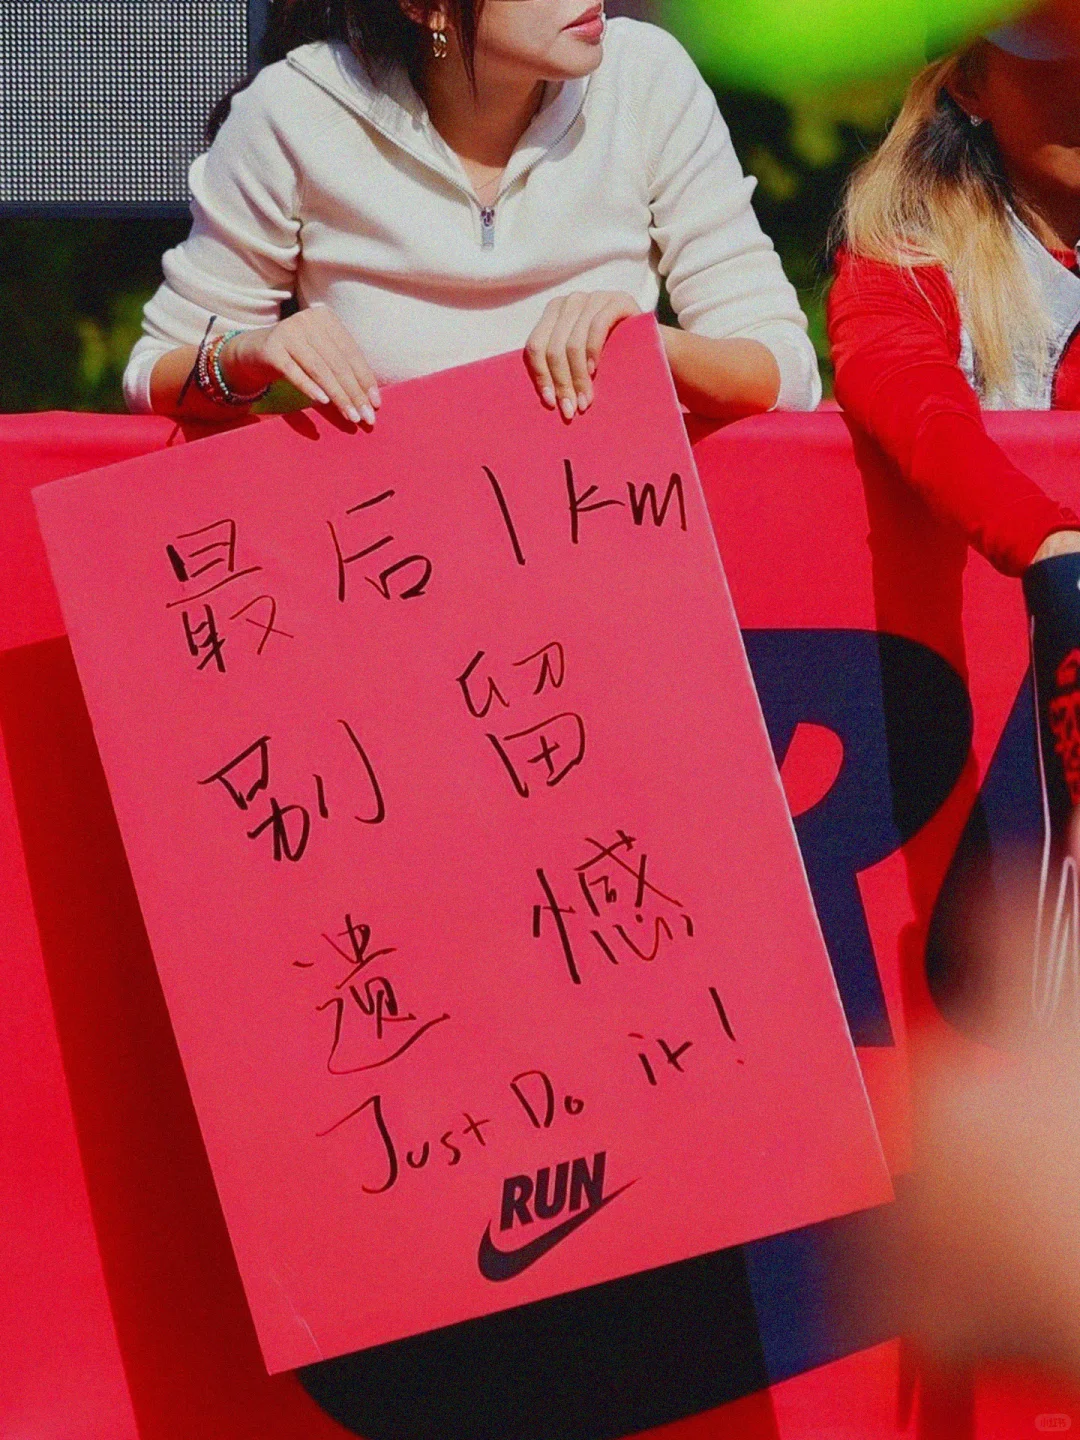 最后1km
别留
遗憾
Just Do it!
RUN
小红书